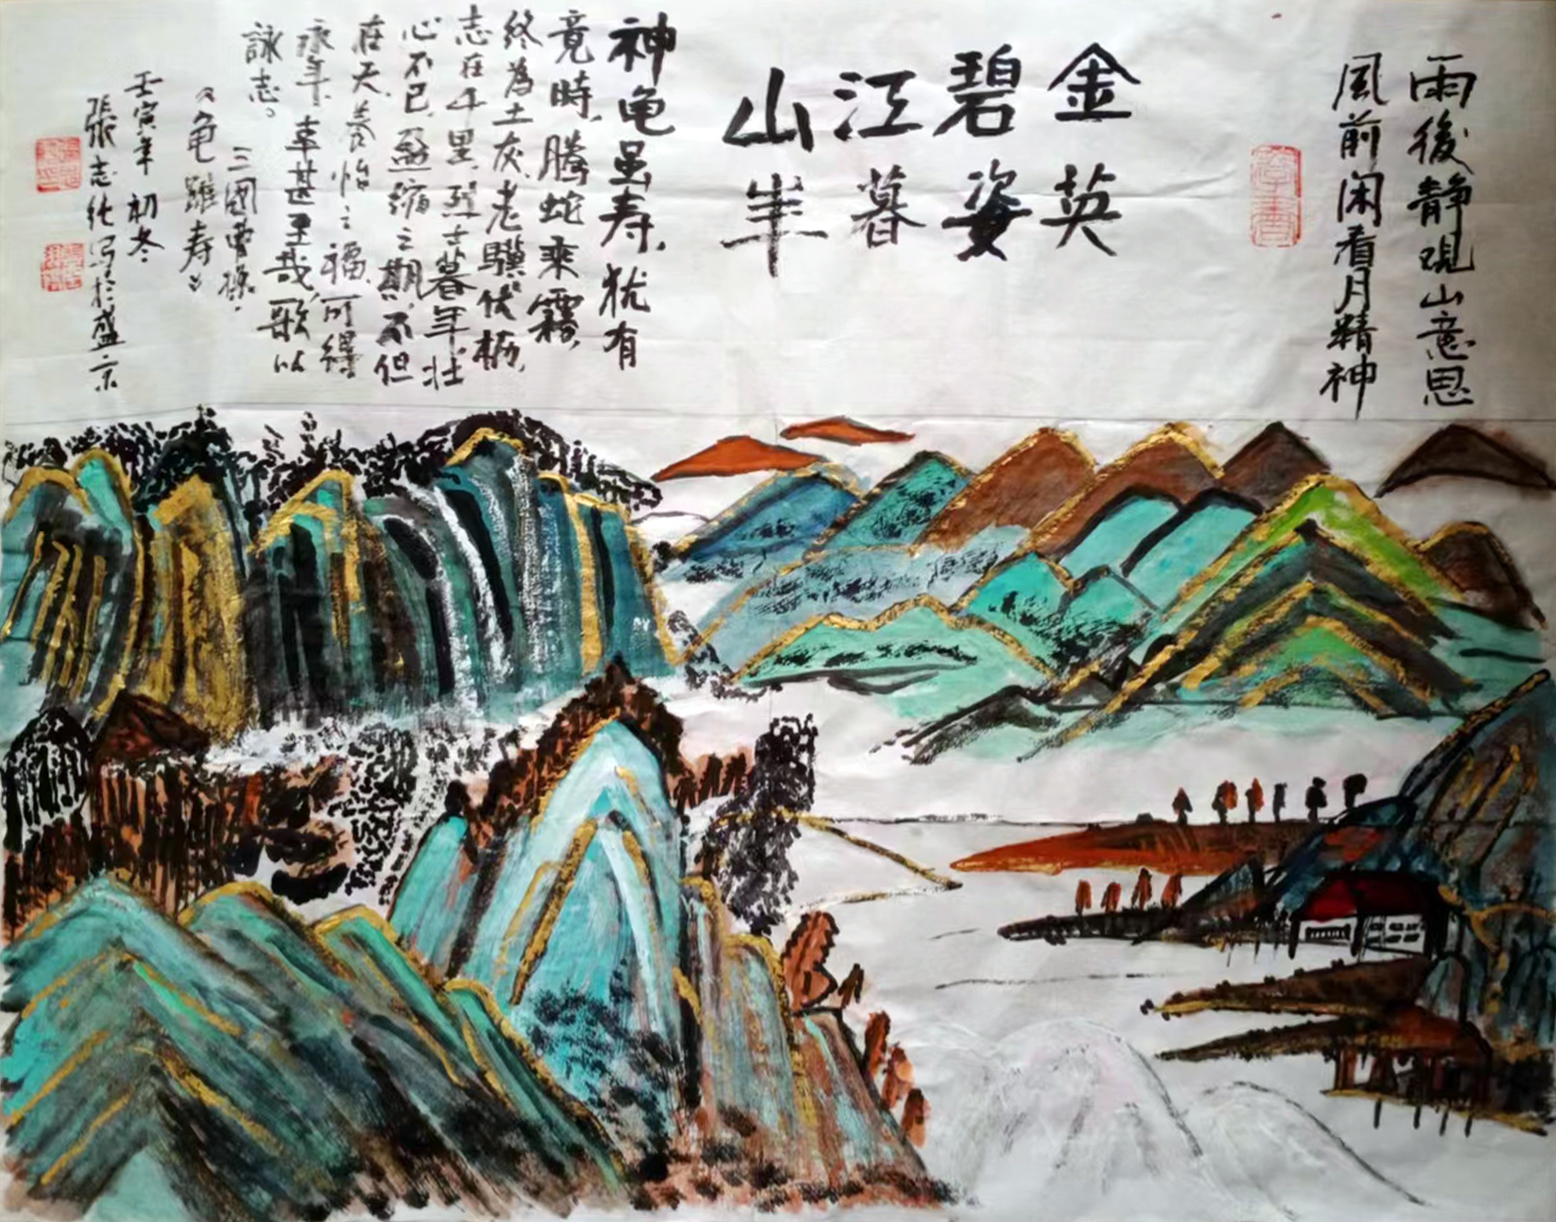 雨後静覌山意思
風前闲看月精神
金碧江山
英姿暮年
神龟虽寿，犹有
竟時，腾蛇乘霧，
终為土灰。老驥伏枥，
志在千里，烈士暮年，壮
心不已。盈缩之期，不但
在天，养怡之福，可得
永年。幸甚至哉，歌以
詠志。
三國曹操，
《龟雖寿》
壬寅年初冬
張志纯写於盛京